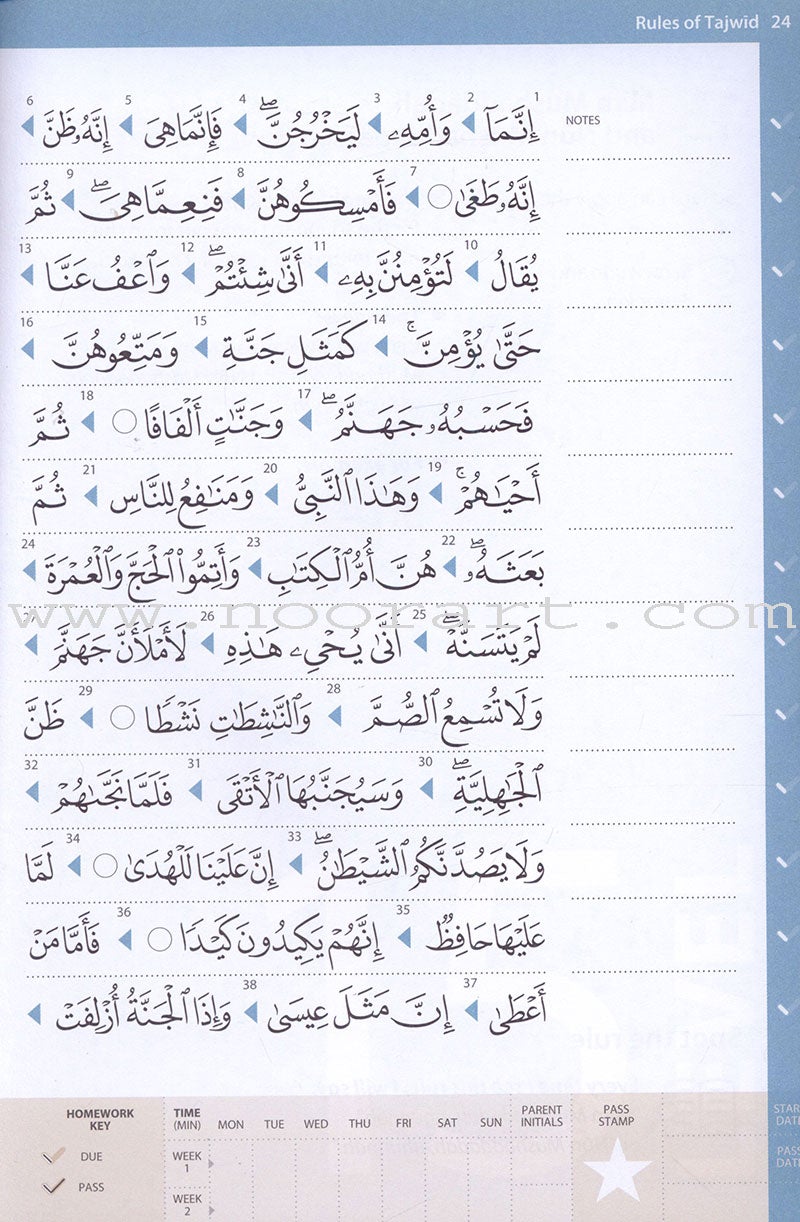 Rules of Tajwid 24
NOTES
1 إِنَّمَآ 2 وَأُمِّهِۦ 3 لَيَخْرُجُنَّ ۖ 4 فَإِنَّمَا هِىَ 5 إِنَّهُۥ ظَنَّ 6
إِنَّهُۥ طَغَىٰ ○ 7 فَأَمْسِكُوهُنَّ 8 فَنِعِمَّا هِىَ ۖ 9 ثُمَّ
يُقَالُ 10 لَتُؤْمِنُنَّ بِهِۦ 11 أَنَّىٰ شِئْتُمْ ۖ 12 وَٱعْفُ عَنَّا 13
حَتَّىٰ يُؤْمِنَّ ۚ 14 كَمَثَلِ جَنَّةِۭ 15 وَمَتِّعُوهُنَّ 16
فَحَسْبُهُۥ جَهَنَّمُ ۖ 17 وَجَنَّٰتٍ أَلْفَافًا ○ 18 ثُمَّ
أَحْيَاهُمْ ۚ 19 وَهَٰذَا ٱلنَّبِىُّ 20 وَمَنَٰفِعُ لِلنَّاسِ 21 ثُمَّ
بَعَثَهُۥ ۖ 22 هُنَّ أُمُّ ٱلْكِتَٰبِ 23 وَأَتِمُّوا۟ ٱلْحَجَّ وَٱلْعُمْرَةَ 24
www.noorart.com
لَمْ يَتَسَنَّهْ ۖ 25 أَنَّىٰ يُحْىِۦ هَٰذِهِ 26 لَأَمْلَأَنَّ جَهَنَّمَ 27
وَلَا تُسْمِعُ ٱلصُّمَّ 28 وَٱلنَّٰشِطَٰتِ نَشْطًا ○ 29 ظَنَّ
ٱلْجَٰهِلِيَّةِ ۖ 30 وَسَيُجَنَّبُهَا ٱلْأَتْقَى 31 فَلَمَّا نَجَّىٰهُمْ 32
وَلَا يَصُدَّنَّكُمُ ٱلشَّيْطَٰنُ ۖ 33 إِنَّ عَلَيْنَا لَلْهُدَىٰ ○ 34 لَمَّا
عَلَيْهَا حَافِظٌ 35 إِنَّهُمْ يَكِيدُونَ كَيْدًا ○ 36 فَأَمَّا مَنْ
أَعْطَىٰ 37 إِنَّ مَثَلَ عِيسَىٰ 38 وَإِذَا ٱلْجَنَّةُ أُزْلِفَتْ
HOMEWORK KEY
DUE
PASS
TIME (MIN) MON TUE WED THU FRI SAT SUN PARENT INITIALS PASS STAMP
WEEK 1
WEEK 2